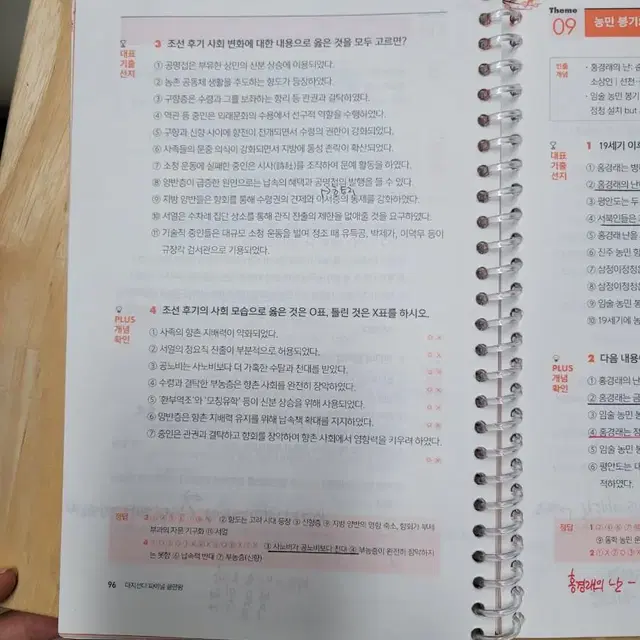 3 조선 후기 사회 변화에 대한 내용으로 옳은 것을 모두 고르면?
대표
기출
선지
① 공명첩은 부유한 상민의 신분 상승에 이용되었다.
② 농촌 공동체 생활을 주도하는 향도가 등장하였다.
③ 구향층은 수령과 그를 보좌하는 향리 등 관권과 결탁하였다.
④ 역관 등 중인은 외래문화의 수용에서 선구적 역할을 수행하였다.
⑤ 구향과 신향 사이에 향전이 전개되면서 수령의 권한이 강화되었다.
⑥ 사족들의 문중 의식이 강화되면서 지방에 동성 촌락이 확산되었다.
⑦ 소청 운동에 실패한 중인은 시사(詩社)를 조직하여 문예 활동을 하였다.
⑧ 양반층이 급증한 원인으로는 납속의 혜택과 공명첩의 발행을 들 수 있다.
⑨ 지방 양반들은 향회를 통해 수령권의 견제와 이서층의 통제를 강화하였다.
⑩ 서얼은 수차례 집단 상소를 통해 관직 진출의 제한을 없애줄 것을 요구하였다.
⑪ 기술직 중인들은 대규모 소청 운동을 벌여 정조 때 유득공, 박제가, 이덕무 등이
규장각 검서관으로 기용되었다.
4 조선 후기의 사회 모습으로 옳은 것은 O표, 틀린 것은 X표를 하시오.
PLUS
개념
확인
① 사족의 향촌 지배력이 약화되었다.
② 서얼의 청요직 진출이 부분적으로 허용되었다.
③ 공노비는 사노비보다 더 가혹한 수탈과 천대를 받았다.
④ 수령과 결탁한 부농층은 향촌 사회를 완전히 장악하였다.
⑤ '환부역조'와 '모칭유학' 등이 신분 상승을 위해 사용되었다.
⑥ 양반층은 향촌 지배력 유지를 위해 납속책 확대를 지지하였다.
⑦ 중인은 관권과 결탁하고 향회를 장악하며 향촌 사회에서 영향력을 키우려 하였다.
정답
② 향도는 고려 시대 등장 ③ 신향층 ⑨ 지방 양반의 영향 축소, 향회가 부세
부과의 자문 기구화 ⑪ 서얼
③ 사노비가 공노비보다 천대 ④ 부농층이 완전히 장악하지
는 못함 ⑥ 납속책 반대 ⑦ 부농층(신향)
96
Theme
09 농민 봉기
빈출
개념
· 홍경래의 난:
소상인
· 임술 농민 봉기
정청 설치 but
1 19세기 이후
대표
기출
선지
① 홍경래는
② 홍경래의 난
③ 평안도는
④ 서북인들은
⑤ 홍경래 난을
⑥ 진주 농민
⑦ 삼정이정청
⑧ 삼정이정청
⑨ 임술 농민
⑩ 19세기에
2 다음 내용
PLUS
개념
확인
① 홍경래의 난
② 홍경래는
③ 임술 농민
④ 홍경래는
⑤ 임술 농민
⑥ 평안도는
적하였다.
정답
홍경래의 난 –